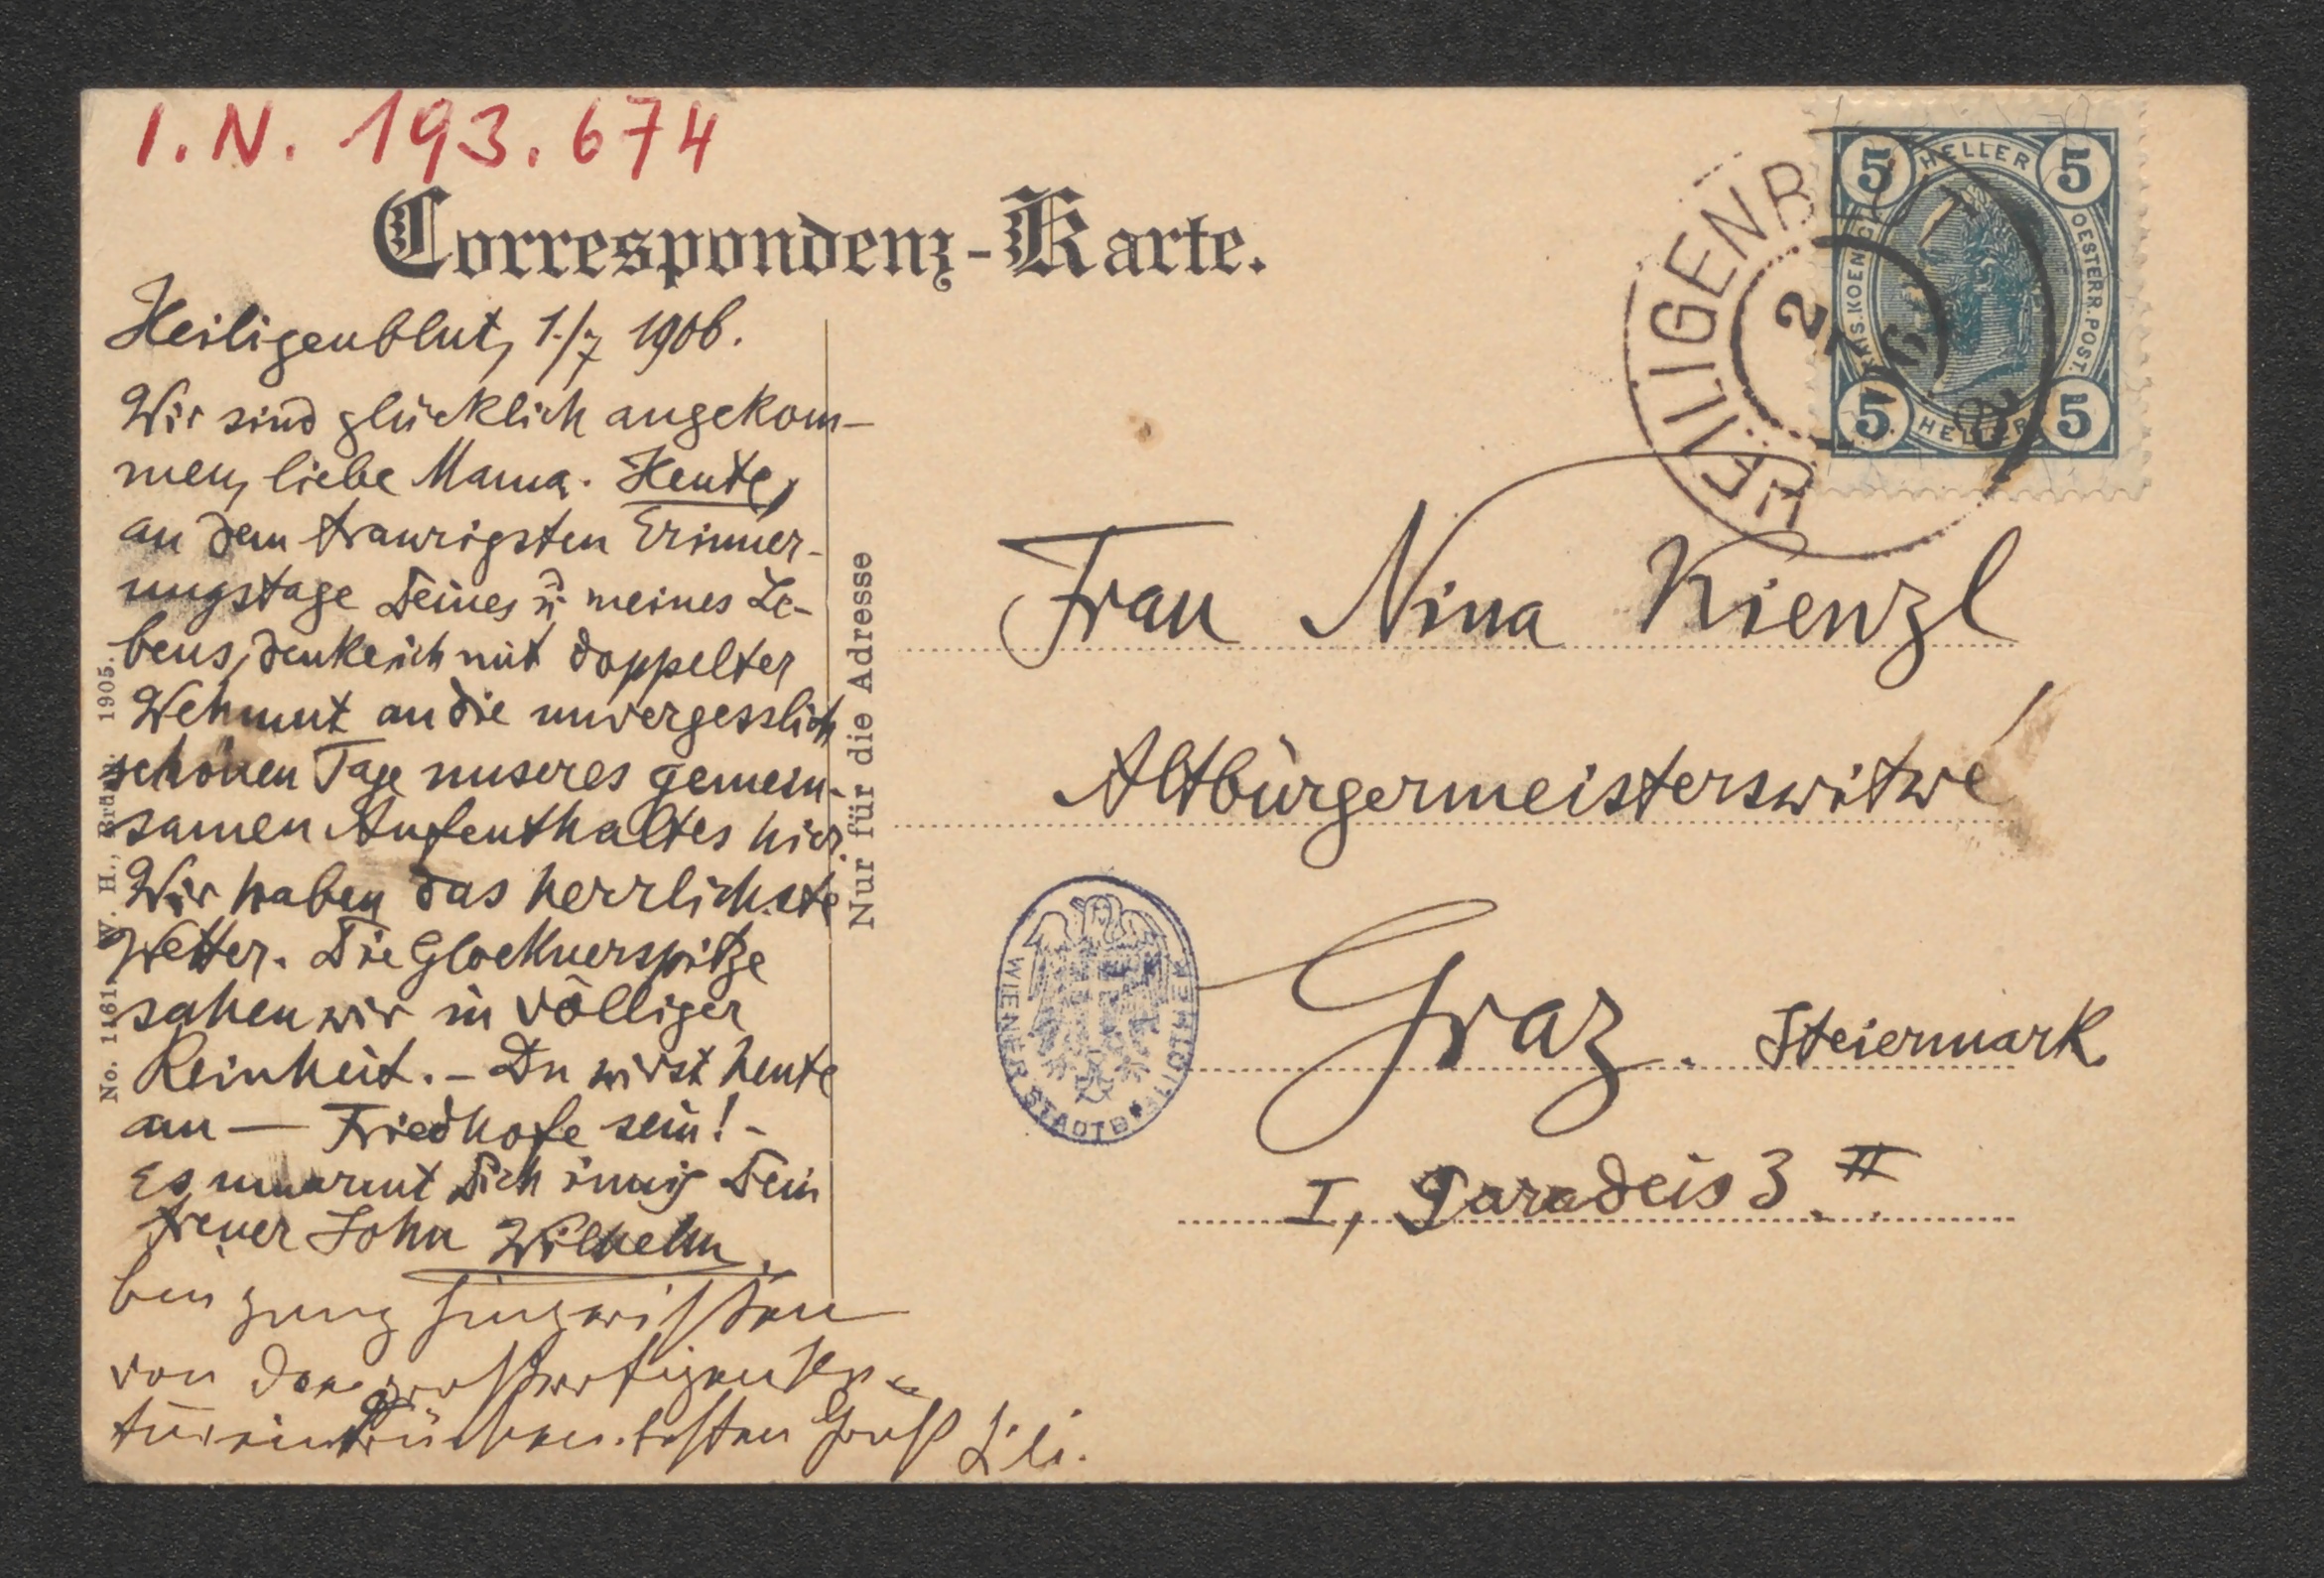 I.N. 193.674
Correspondenz-Karte.
Heiligenblut, 1./7 1906.
Wir sind glücklich angekom-
men, liebe Mama. Heute,
an dem traurigsten Erinner-
ungstage Deines u. meines Le-
bens, denke ich mit doppelter
Wehmut an die unvergesslich
schönen Tage unseres gemein-
samen Aufenthaltes hier.
Wir haben das herrlichste
Wetter. Die Glocknerspitze
sahen wir in völliger
Reinheit. – Du wirst heute
am — Friedhofe sein! –
Es umarmt Dich innig Dein
treuer Sohn Wilhelm.
bin ganz hingerissen
von den großartigen Na-
tureindrücken. besten Gruß Lili.
No. 1161. W. H., Brünn. 1905.
Nur für die Adresse
HEILIGENB
5 HELLER 5
OESTERR. POST.
5 HELLER 5
Frau Nina Kienzl
Altbürgermeisterswitwe
Graz. Steiermark
I, Paradeis 3. II
WIENER STADTBIBLIOTHEK